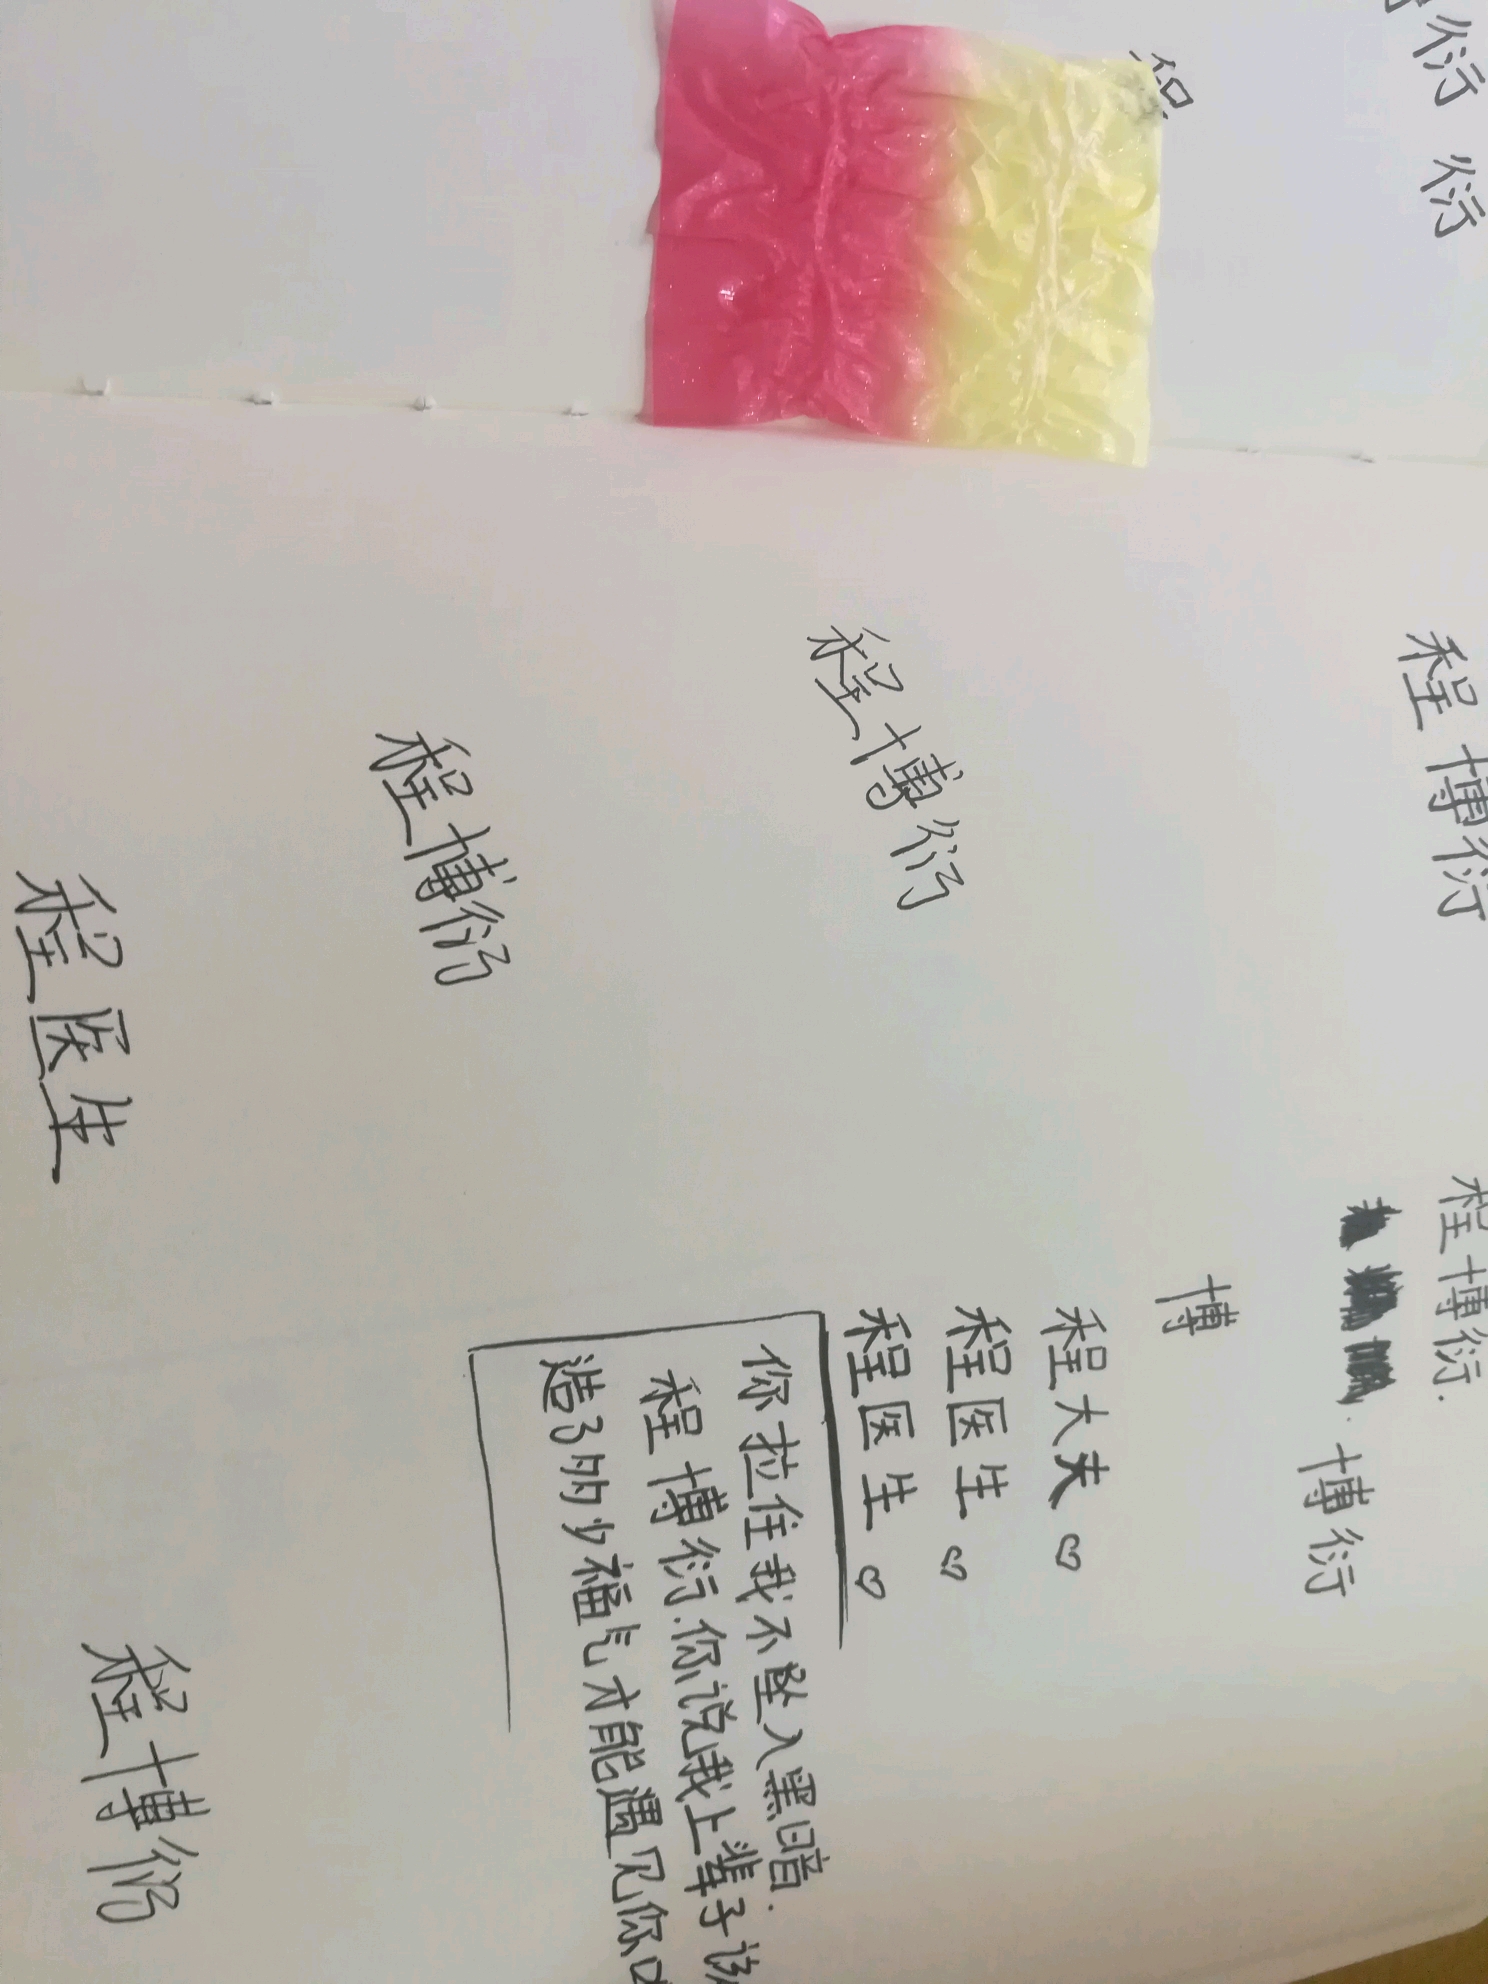 衍
衍
程博衍
程博衍.
博衍
博
程大夫♡
程医生♡
程医生♡
你拉住我不坠入黑暗.
程博衍.你说我上辈子该
造了多少福气才能遇见你
程博衍
程博衍
程医生
程博衍